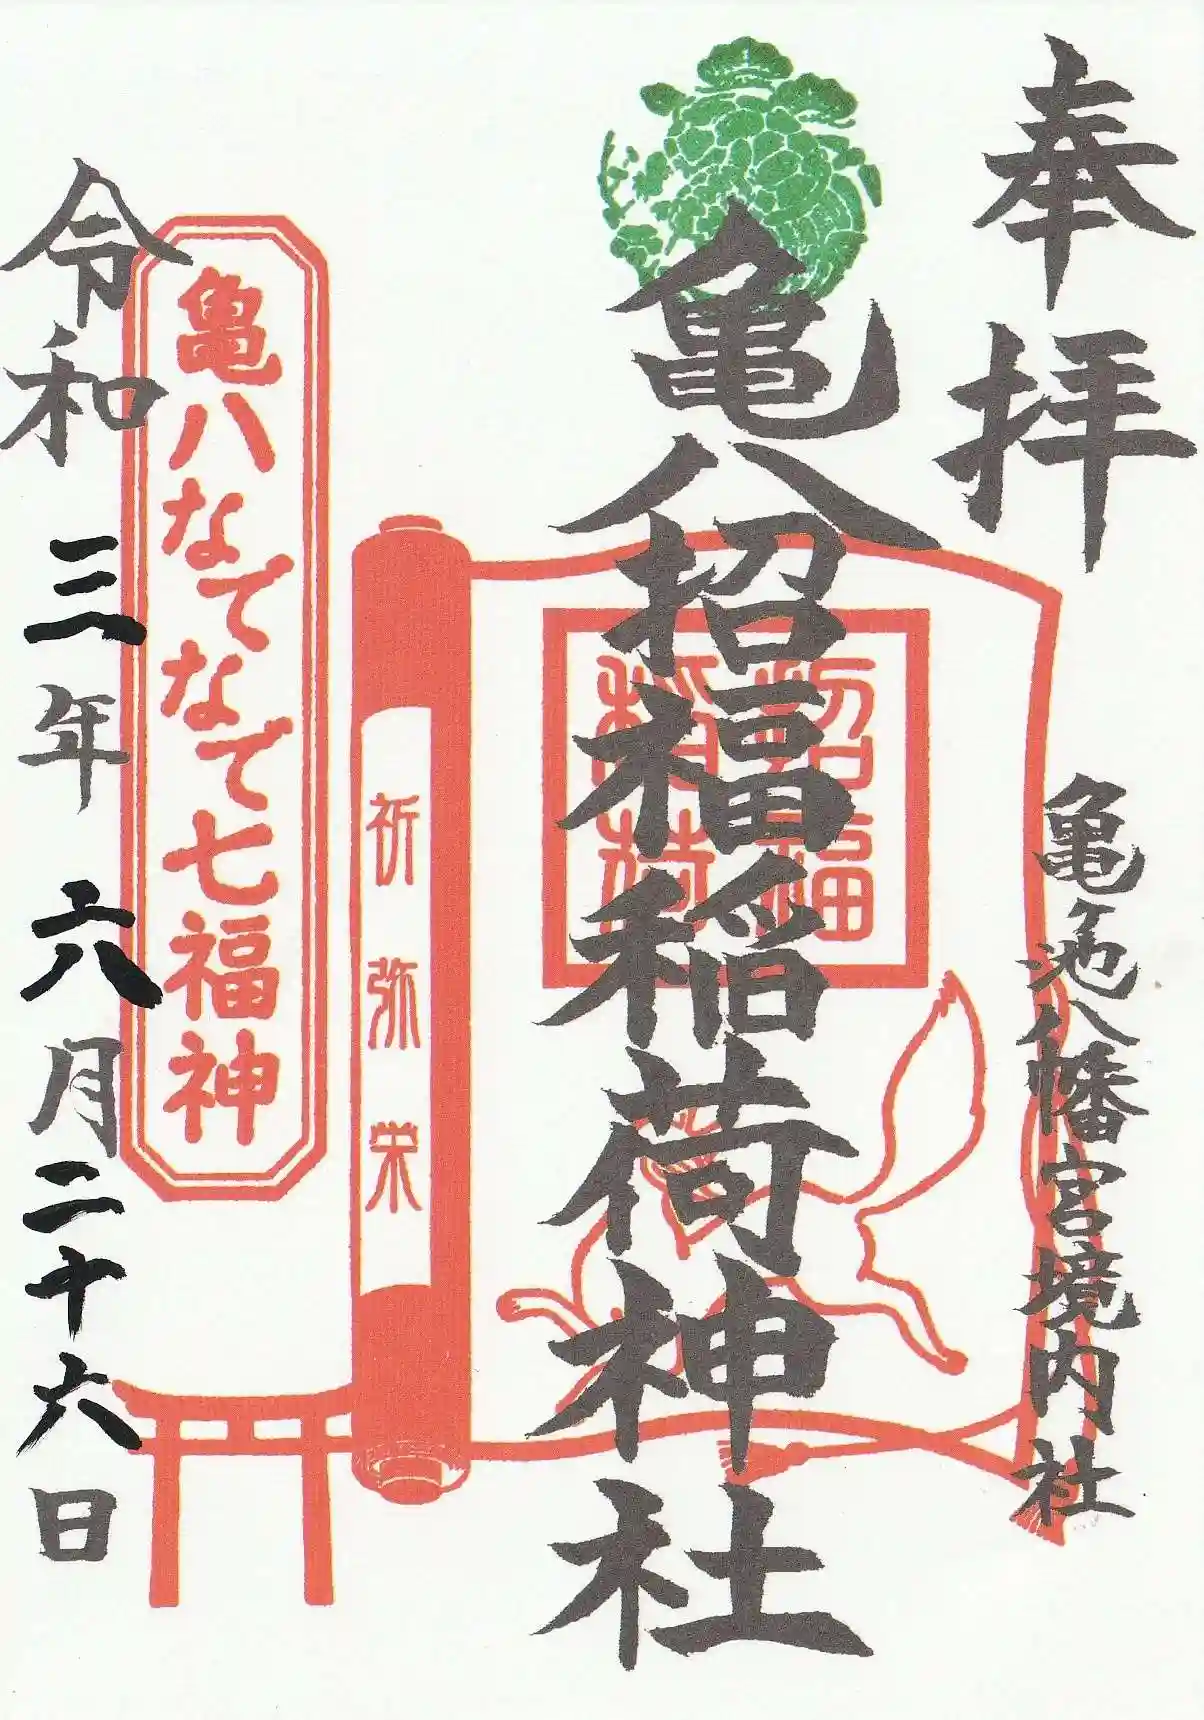 奉拝
亀ヶ池八幡宮境内社
亀八招福稲荷神社
招福
稲荷
祈弥栄
亀八なでなで七福神
令和三年六月二十六日